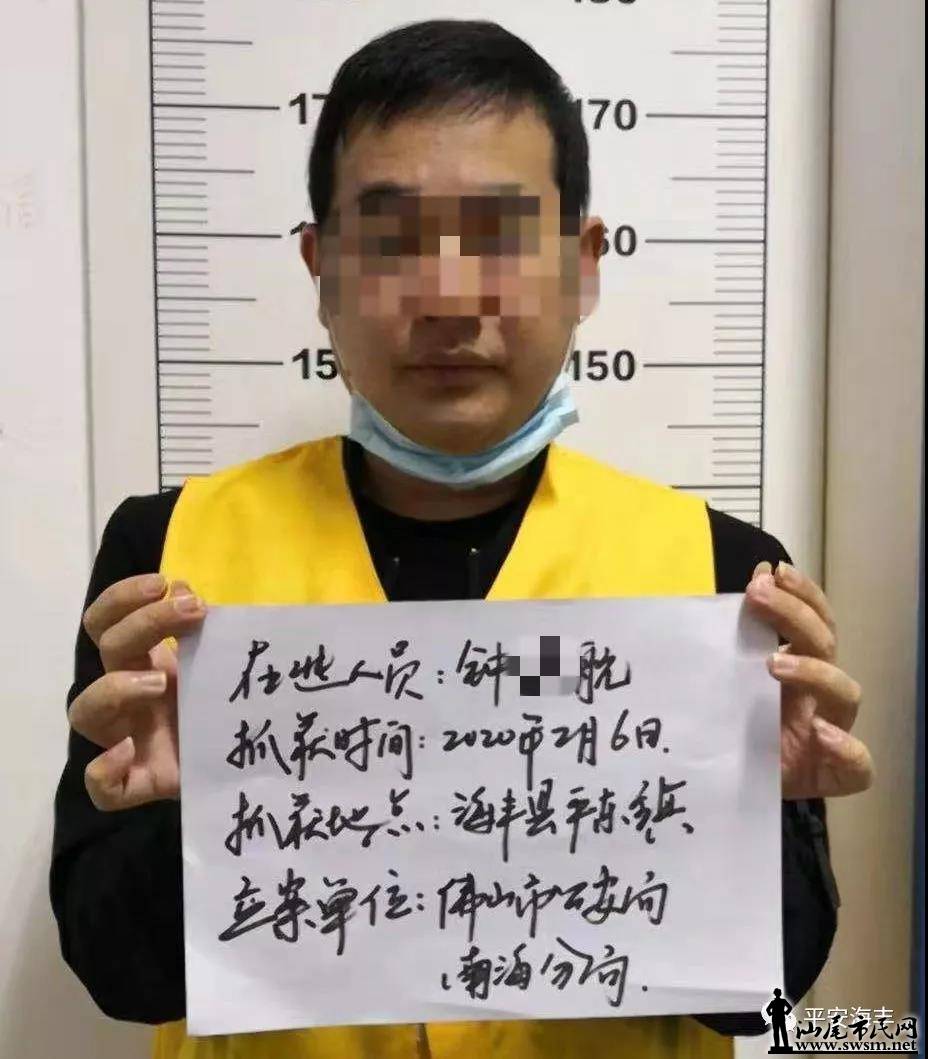 180
170
160
150
170
150
在逃人员：钟
抓获时间：2020年2月6日.
抓获地点：海丰县平东镇
立案单位：佛山市公安局
南海分局.
平安海丰
汕尾市民网
www.swsm.net